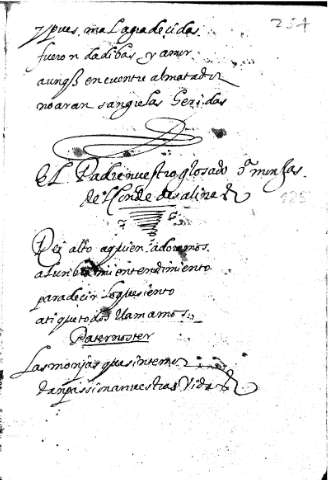 254
y pues mal agradecidas
fueron dadibas y amor
aunq̃ encuentre al matador
no aran sangre las heridas
El Padre nuestro glosado q̃ monjas
del Conde de salinas
125
Rei alto a quien adoramos
alunbra mi entendimiento
para decir lo que siento
a ti que todos llamamos
Paternoster
Las monjas que sin temor
dan passion a nuestras Vidas